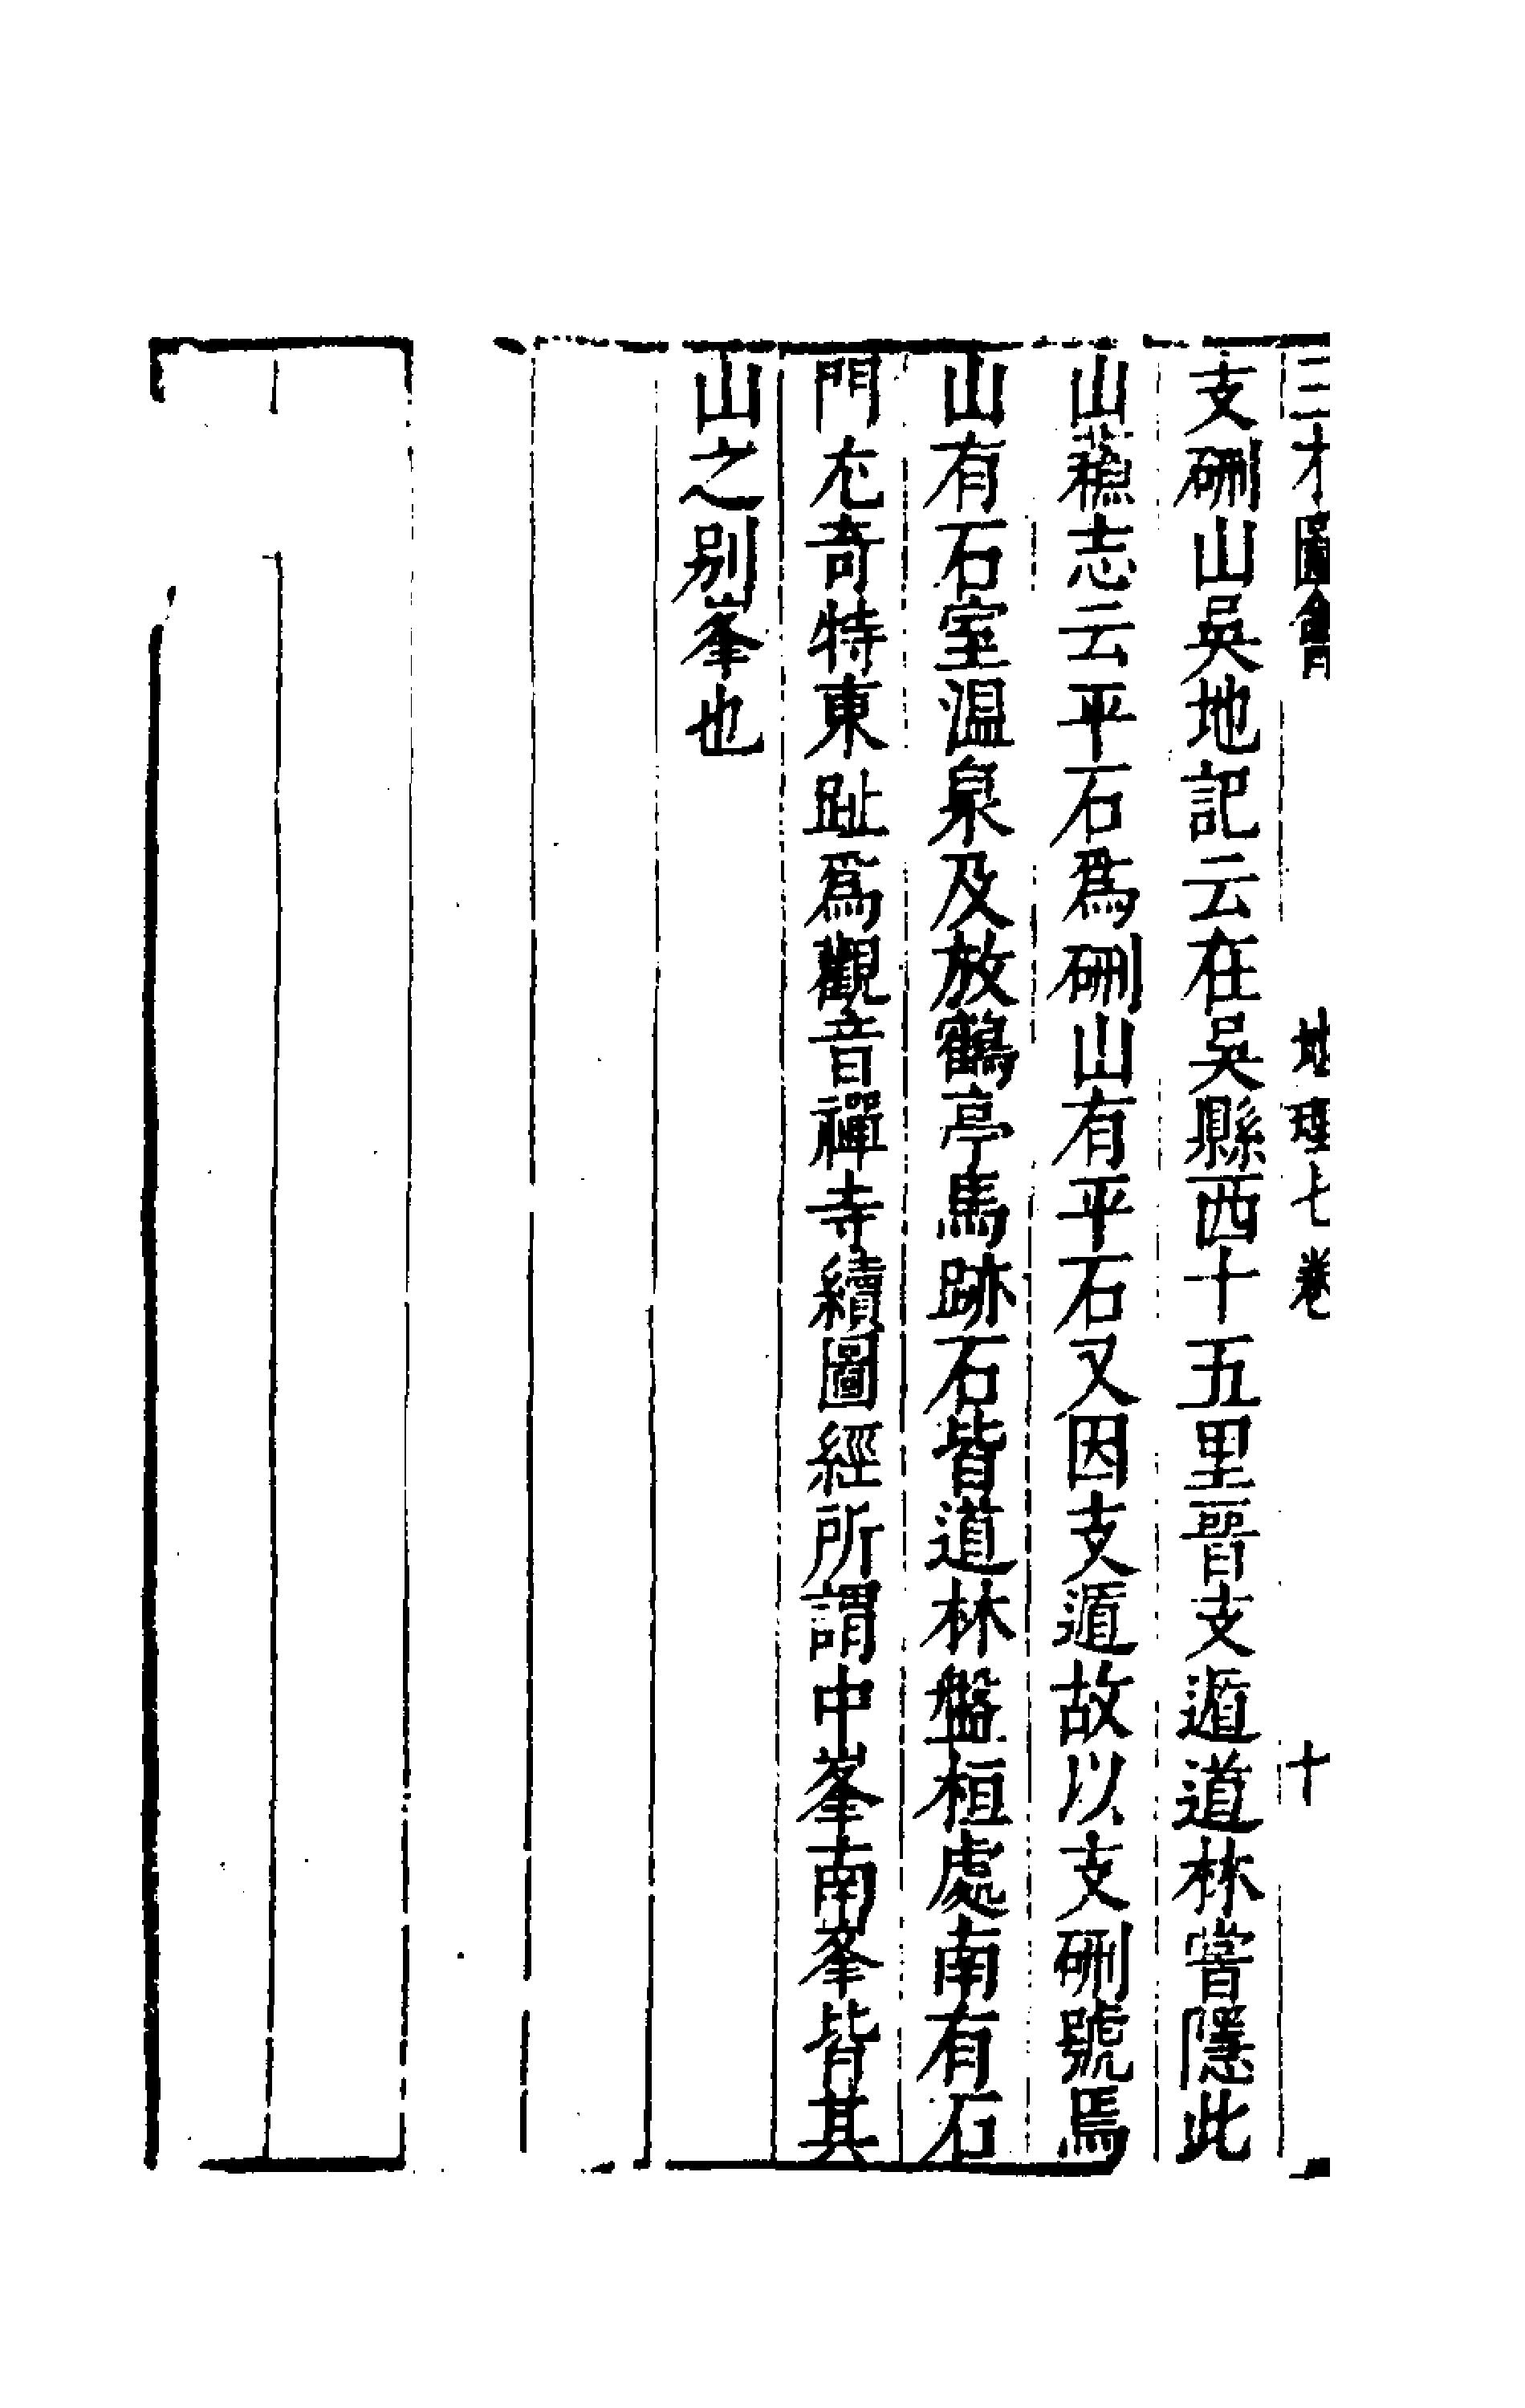 三才圖會 地理七卷 十
支硎山吳地記云在吳縣西十五里晉支遁道林嘗隱此
山蘓志云平石爲硎山有平石又因支遁故以支硎號焉
山有石室温泉及放鶴亭馬跡石皆道林盤桓處南有石
門尤奇特東趾爲觀音禪寺續圖經所謂中峯南峯皆其
山之别峯也